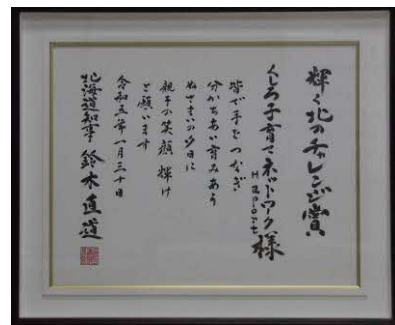 輝く北のチャレンジ賞
くしろ子育てネットワーク
Haport様
皆で手をつなぎ
分かちあい育みあう
ぬさまいの夕日に
親子の笑顔輝け
と願います
令和五年一月三十日
北海道知事 鈴木直道